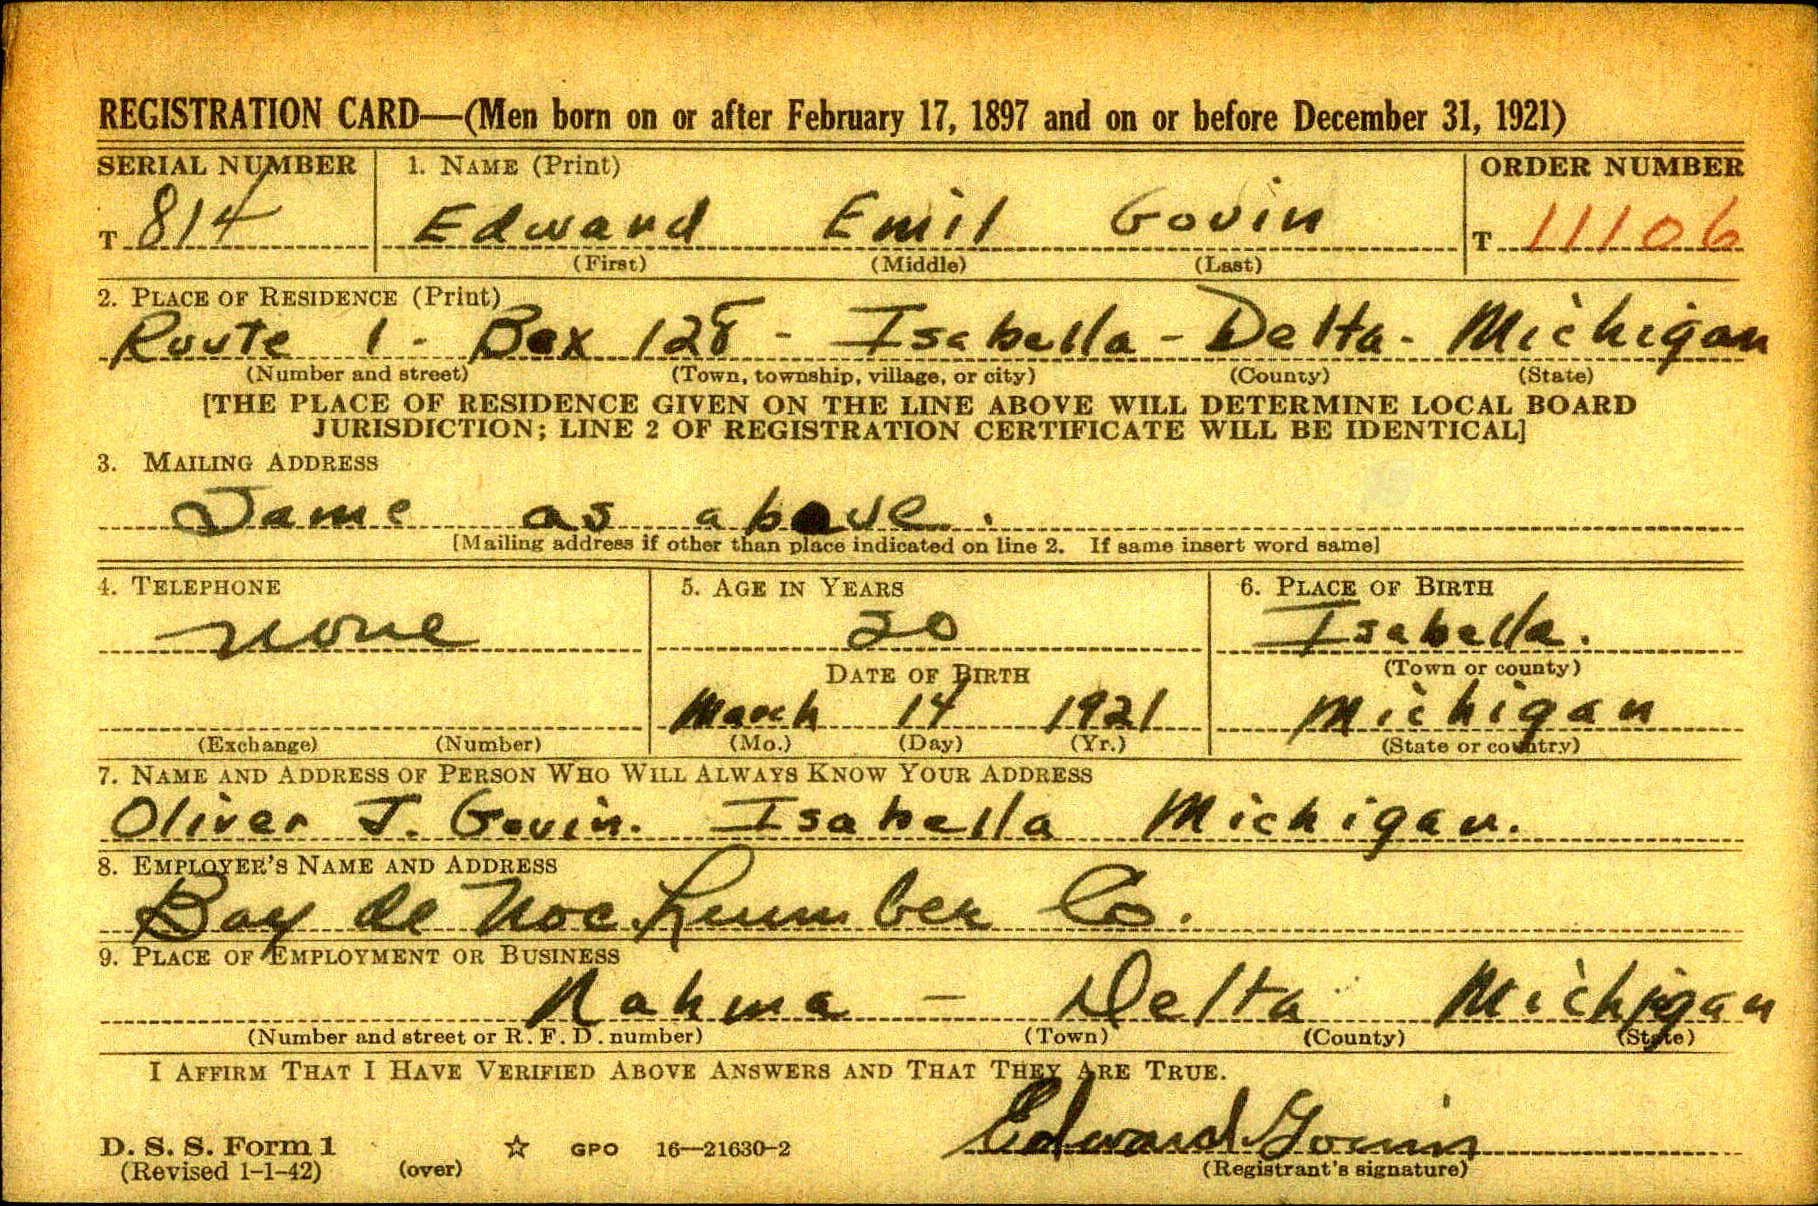 REGISTRATION CARD—(Men born on or after February 17, 1897 and on or before December 31, 1921)
SERIAL NUMBER 1. NAME (Print) ORDER NUMBER
T 814 Edward Emil Govin T 11106
(First) (Middle) (Last)
2. PLACE OF RESIDENCE (Print)
Route 1 - Box 128 - Isabella - Delta - Michigan
(Number and street) (Town, township, village, or city) (County) (State)
[THE PLACE OF RESIDENCE GIVEN ON THE LINE ABOVE WILL DETERMINE LOCAL BOARD
JURISDICTION; LINE 2 OF REGISTRATION CERTIFICATE WILL BE IDENTICAL]
3. MAILING ADDRESS
Same as above.
[Mailing address if other than place indicated on line 2. If same insert word same]
4. TELEPHONE 5. AGE IN YEARS 6. PLACE OF BIRTH
none 20 Isabella.
DATE OF BIRTH (Town or county)
March 14 1921 Michigan
(Exchange) (Number) (Mo.) (Day) (Yr.) (State or country)
7. NAME AND ADDRESS OF PERSON WHO WILL ALWAYS KNOW YOUR ADDRESS
Oliver J. Govin. Isabella Michigan.
8. EMPLOYER'S NAME AND ADDRESS
Bay de Noc Lumber Co.
9. PLACE OF EMPLOYMENT OR BUSINESS
Nahma - Delta Michigan
(Number and street or R. F. D. number) (Town) (County) (State)
I AFFIRM THAT I HAVE VERIFIED ABOVE ANSWERS AND THAT THEY ARE TRUE.
Edward Govin
D. S. S. Form 1 ☆ GPO 16—21630-2
(Revised 1-1-42) (over) (Registrant's signature)